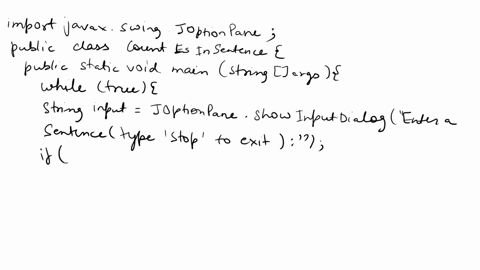 import javax.swing JOptionPane ;
public class Count Es In Sentence {
public static void main (String [] args) {
while (true) {
String input = JOptionPane . showInputDialog ("Enter a
Sentence ( type 'stop' to exit ) : ");
if (